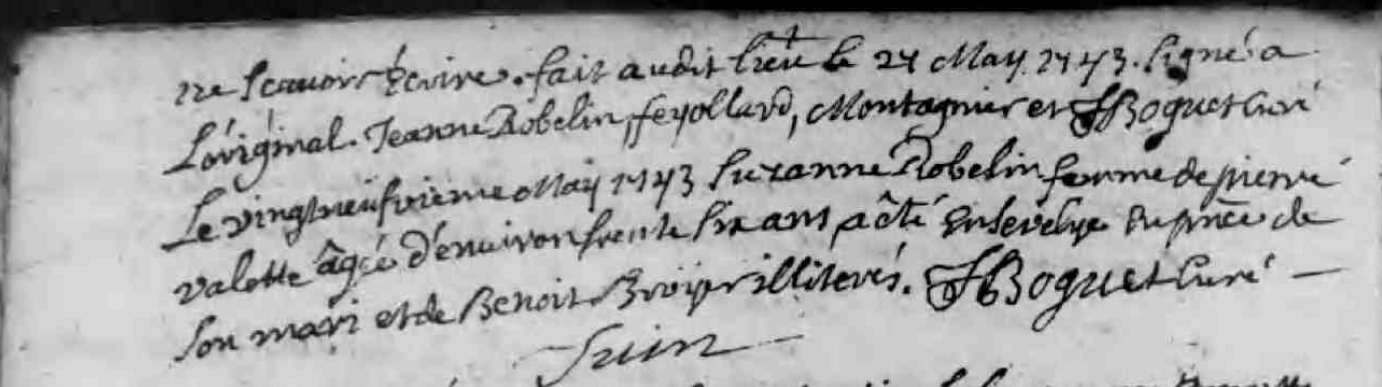 ne scavoir écrire. fait audit lieu le 24 May 1743. signé a
L'original. Jeanne Robelin, feyollard, Montagnier et JBoguet Curé
Le vingtneufvieme May 1743 Suzanne Robelin femme de pierre
valotte âgée d'environ trente six ans a été Ensevelye En pñce de
son mari et de Benoit illiterés. JBoguet Curé —
Juin